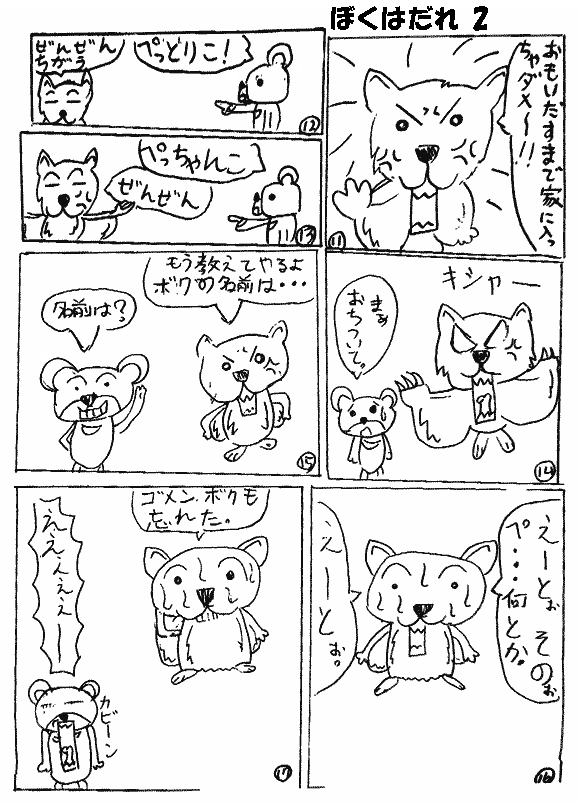 ぼくはだれ 2
おもいだすまで家に入っ
ちゃダメ〜!!
11
ぺっどりこ!
ぜんぜん
ちがう
12
ぺっちゃんこ
ぜんぜん
13
キシャー
まぁ
おちついて。
14
もう教えてやるよ
ボクの名前は・・・
名前は?
15
えーとぉ そのぉ
ペ・・・何とか。
えーとぉ。
16
ゴメン、ボクも
忘れた。
ええええぇー
カビーン
17